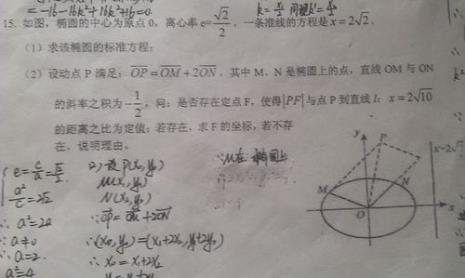 = -16-16k²+16k²+16=0.
15. 如图,椭圆的中心为原点0,离心率 e=√2/2,一条准线的方程是 x=2√2.
(1) 求该椭圆的标准方程;
(2) 设动点 P 满足: OP=OM+2ON,其中 M、N 是椭圆上的点,直线 OM 与 ON
的斜率之积为-1/2,问:是否存在定点 F,使得|PF|与点 P 到直线 l: x=2√10
的距离之比为定值;若存在,求 F 的坐标,若不存
在,说明理由.
e=c/a=√2/2
a²/c=2√2
∴a²=2a
∵a≠0
∴a=2
a²=4
2) 设P(x₀,y₀)
M(x₁,y₁)
N(x₂,y₂)
∵OP=OM+2ON
∴(x₀,y₀)=(x₁+2x₂,y₁+2y₂)
∴x₀=x₁+2x₂
∵M在椭圆上
y
P
M
N
O
x